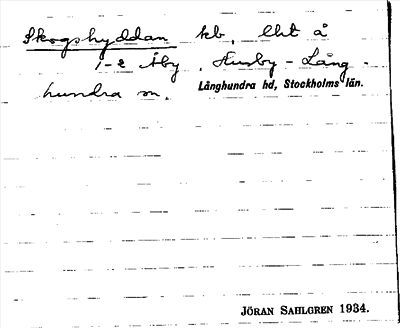 Skogshyddan kb, lht å
1-2 Åby, Husby - Lång-
hundra sn.
Långhundra hd, Stockholms län.
JÖRAN SAHLGREN 1934.